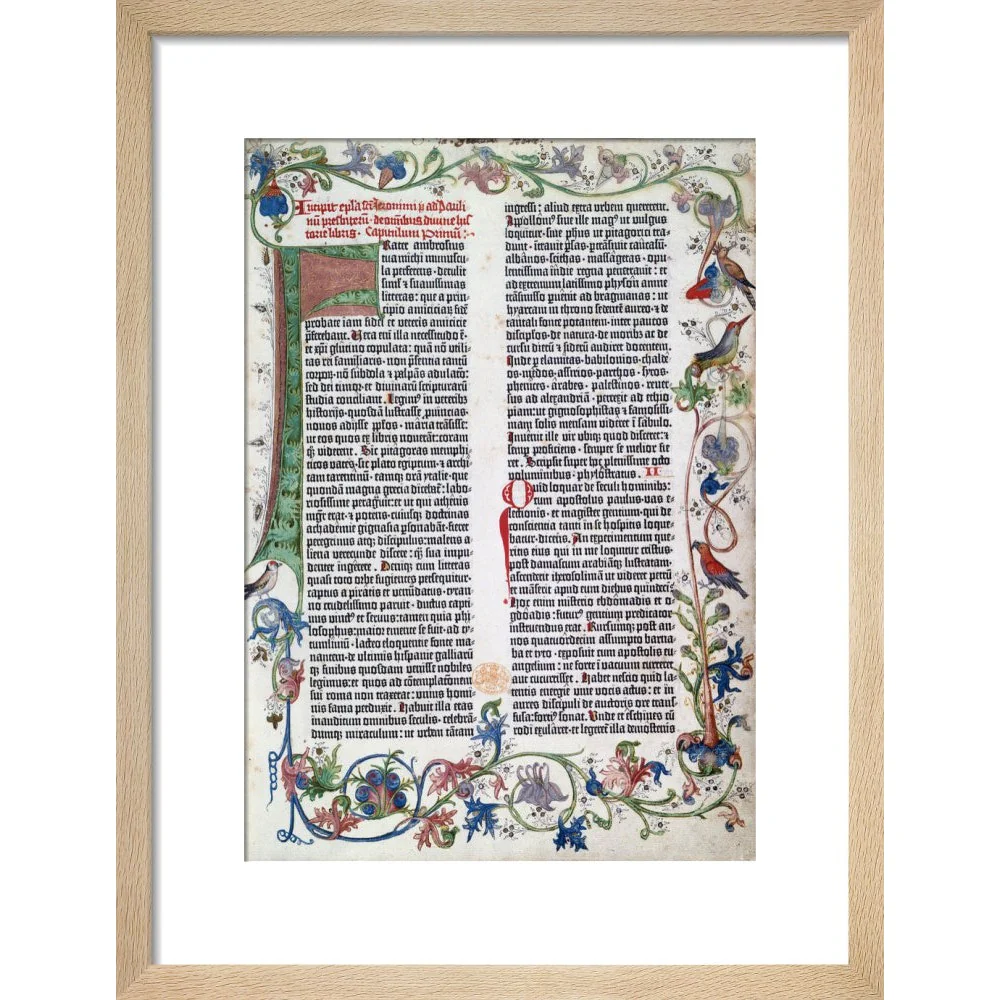 Incipit epla sci Iheronimi p̄ ad Pauli
nū presbiterū · de omnibus divine his
torie libris · Capitulum Primū :
Frater ambrosius
tua michi munuscu
la perferens · detulit
simul et suavissimas
litteras : que a prin
cipio amicicias fidē
probate iam fidei et veteris amicicie
p̄ferebant . Vera enī illa necessitudo ē·
et xp̄i glutino copulata : quā nō utili
tas rei familiaris · non p̄sentia tantū
corporū · nō subdola et palpās adulatō:
sed dei timor · et divinarū scripturarū
studia conciliant . Legimus in veteribus
historijs · quosdā lustrasse p̄vincias·
novos adijsse pp̄los · maria trāsisse:
ut eos quos ex libris noverāt : coram
q; viderent . Sic pitagoras memphi
ticos vates · sic plato egiptum · et archi
tam tarentinū · eamq; orā ytalie · que
quondā magna grecia dicebat : labo
riosissime peragravit : et ut qui athenis
mgr̄ erat · et potens · cuiusq; doctrinas
achademie gignasia p̄sonabāt · fieret
peregrinus atq; discipulus : malens a
liena verecunde discere : q̄; sua impu
denter ingērere . Deniq; cum litteras
quasi toto orbe fugientes persequitur·
captus a pirātis et venūdatus · tyrān
no crudelissimo paruit · ductus capti
vus vinct9 et servus : tamen quia phi
losophus : maior emente se fuit · ad ty
tumlivium · lacteo eloquentie fonte ma
nantem · de ultimis hispanie galliarū
q; finibus quosdam venisse nobiles
legimus : et quos ad cōtemplatōnem
sui roma non traxerat : unius homi
nis fama perduxit . Habuit illa etas
inauditum omnibus seculis · celebrā
dumq; miraculum : ut urbem tātam
ingressi : aliud extra urbem quererent.
Apollonius sive ille mag9 ut vulgus
loquitur · sive phūs · ut pitagorici tra
dunt · intravit p̄sas · pertrāsivit caucasū·
albānos · scithas · massagetas · opu
lentissima indie regna penetravit : et
ad extremum latissimo physōn amne
trāsmisso puēnit ad bragmanas : ut
hyarcam in throno sedentē aureo · et de
tantali fonte potantem · inter paucos
discipl̄os · de natura · de moribus ac de
cursu dierū et siderū audiret docentem.
Inde p elamitas · babilonios · chalde
os · mēdos · assirios · parthos · syros·
phenices · ārabes · palestinos · rever
sus ad alexandriā · perrexit ad ethio
piam : ut gignosophistas et famosissi
mam solis mensam videret ī sābulo.
Invenit ille vir ubiq; quod disceret : et
semp proficiens · semper se melior fie
ret . Scripsit super hoc plenissime octo
voluminibus · phylostratus . II
Quid loquar de seculi hominibz:
cum apostolus paulus · vas e
lectionis · et magister gentium · qui de
conscientia tanti in se hospitis loque
batur · dicens . An experimentum que
ritis eius qui in me loquitur cristus.
post damascum arabiāq; lustratam·
ascenderit iherosolimā ut videret petrū
et māserit apud eum diebus quindeci.
Hoc enim misterio ebdōmadis et o
gdoadis : futur9 gentium predicator
instruendus erat . Rursumq; post ann
nos quatuordecim assumpto barna
ba et tyto · exposuit cum apostolis eu
angelium : ne forte ī vacuum curreret
aut cucurrisset . Habet nescio quid la
tentis energie vive vocis actus : et in
aures discipuli de auctoris ore trans
fusa : forti9 sonat . Unde et eschines cū
rodi exularet · et legeret illa demostenis